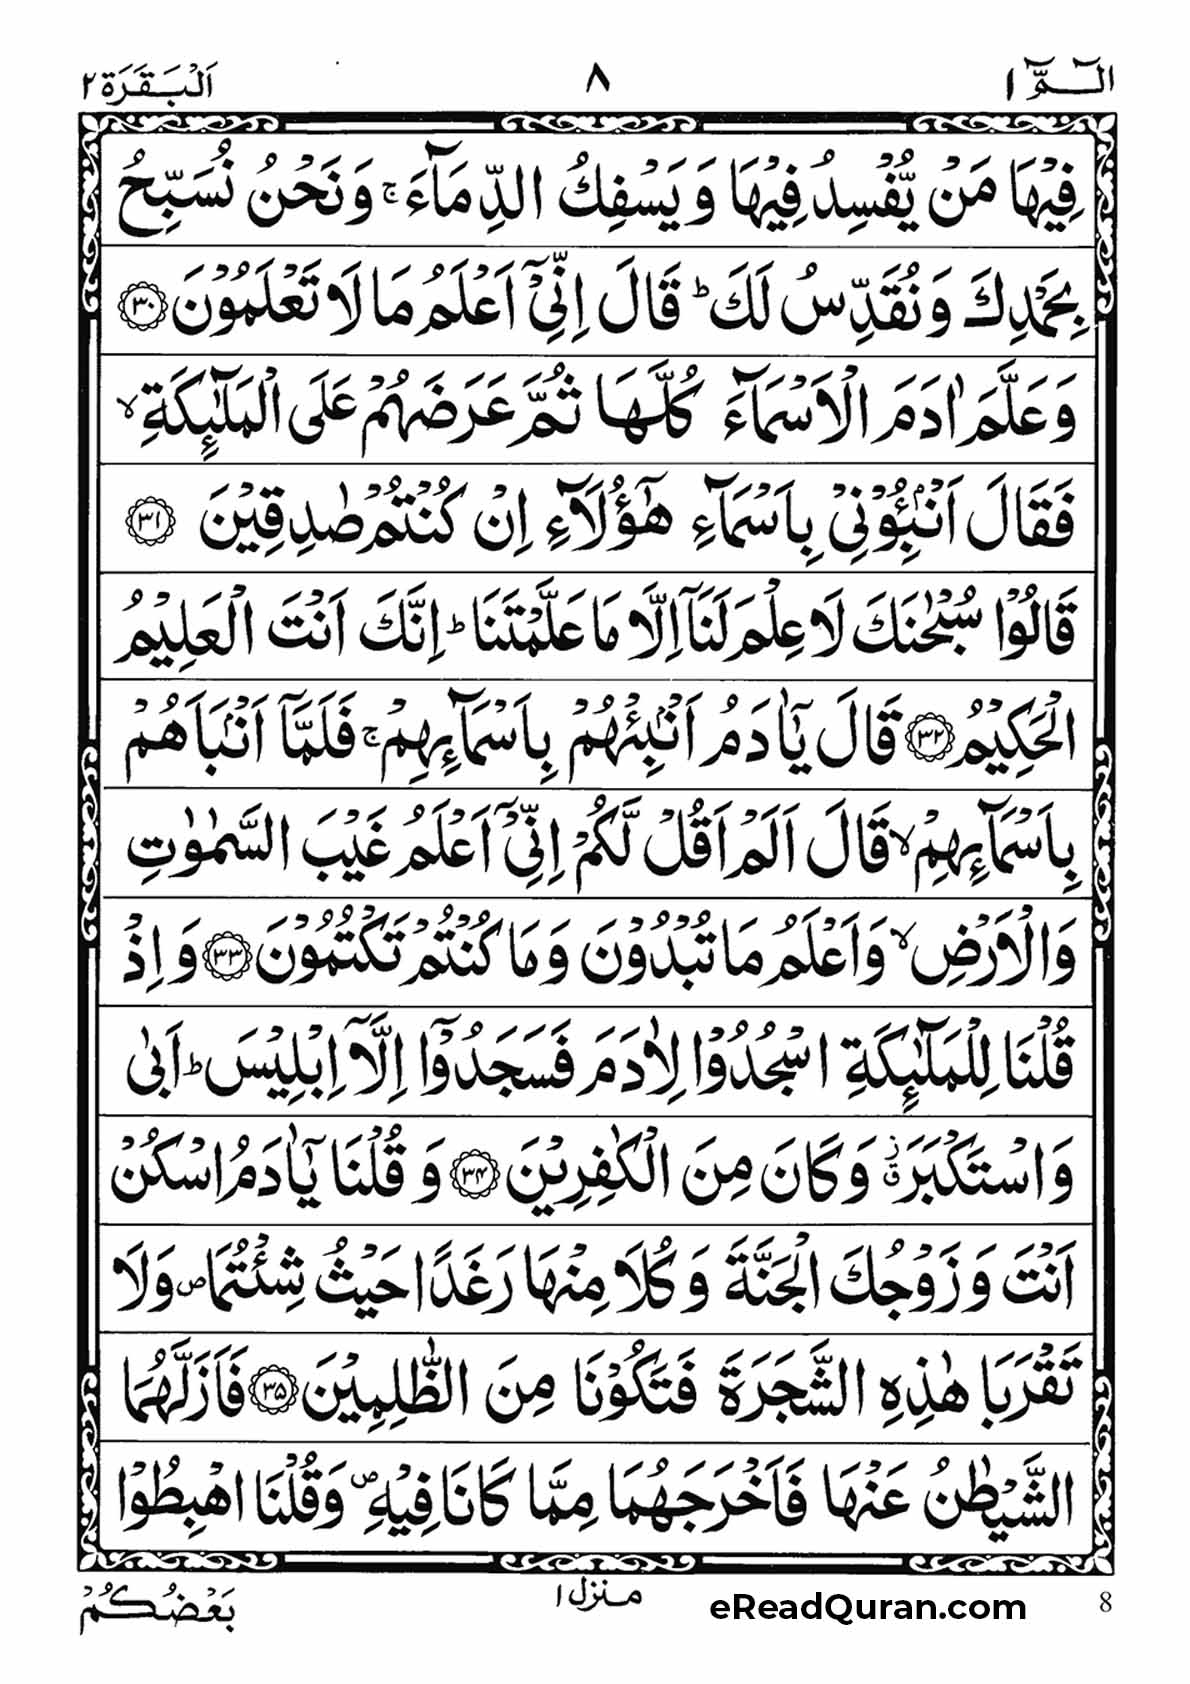 الٓـمّٓ ١ ٨ اَلْبَقَرَة ٢
فِيْهَا مَنْ يُّفْسِدُ فِيْهَا وَ يَسْفِكُ الدِّمَآءَۚ وَ نَحْنُ نُسَبِّحُ
بِحَمْدِكَ وَ نُقَدِّسُ لَكَؕ قَالَ اِنِّيْۤ اَعْلَمُ مَا لَا تَعْلَمُوْنَ ﴿۳۰﴾
وَ عَلَّمَ اٰدَمَ الْاَسْمَآءَ كُلَّهَا ثُمَّ عَرَضَهُمْ عَلَى الْمَلٰٓئِكَةِۙ
فَقَالَ اَنْۢبِـُٔوْنِيْ بِاَسْمَآءِ هٰۤؤُلَآءِ اِنْ كُنْتُمْ صٰدِقِيْنَ ﴿۳۱﴾
قَالُوْا سُبْحٰنَكَ لَا عِلْمَ لَنَاۤ اِلَّا مَا عَلَّمْتَنَاؕ اِنَّكَ اَنْتَ الْعَلِيْمُ
الْحَكِيْمُ ﴿۳۲﴾ قَالَ يٰۤاٰدَمُ اَنْۢبِئْهُمْ بِاَسْمَآئِهِمْۚ فَلَمَّاۤ اَنْۢبَاَهُمْ
بِاَسْمَآئِهِمْۙ قَالَ اَلَمْ اَقُلْ لَّكُمْ اِنِّيْۤ اَعْلَمُ غَيْبَ السَّمٰوٰتِ
وَ الْاَرْضِۙ وَ اَعْلَمُ مَا تُبْدُوْنَ وَ مَا كُنْتُمْ تَكْتُمُوْنَ ﴿۳۳﴾ وَ اِذْ
قُلْنَا لِلْمَلٰٓئِكَةِ اسْجُدُوْا لِاٰدَمَ فَسَجَدُوْۤا اِلَّاۤ اِبْلِيْسَؕ اَبٰى
وَ اسْتَكْبَرَ٘ۗ وَ كَانَ مِنَ الْكٰفِرِيْنَ ﴿۳۴﴾ وَ قُلْنَا يٰۤاٰدَمُ اسْكُنْ
اَنْتَ وَ زَوْجُكَ الْجَنَّةَ وَ كُلَا مِنْهَا رَغَدًا حَيْثُ شِئْتُمَا۪ وَلَا
تَقْرَبَا هٰذِهِ الشَّجَرَةَ فَتَكُوْنَا مِنَ الظّٰلِمِيْنَ ﴿۳۵﴾ فَاَزَلَّهُمَا
الشَّيْطٰنُ عَنْهَا فَاَخْرَجَهُمَا مِمَّا كَانَا فِيْهِ۪ وَ قُلْنَا اهْبِطُوْا
بَعْضُكُمْ منزل ١ eReadQuran.com 8